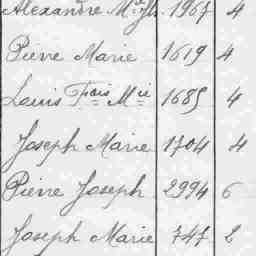 Alexandre Mie Jh. 1967 4
Pierre Marie 1619 4
Louis Fçois Mie 1685 4
Joseph Marie 1704 4
Pierre Joseph 2994 6
Joseph Marie 747 2